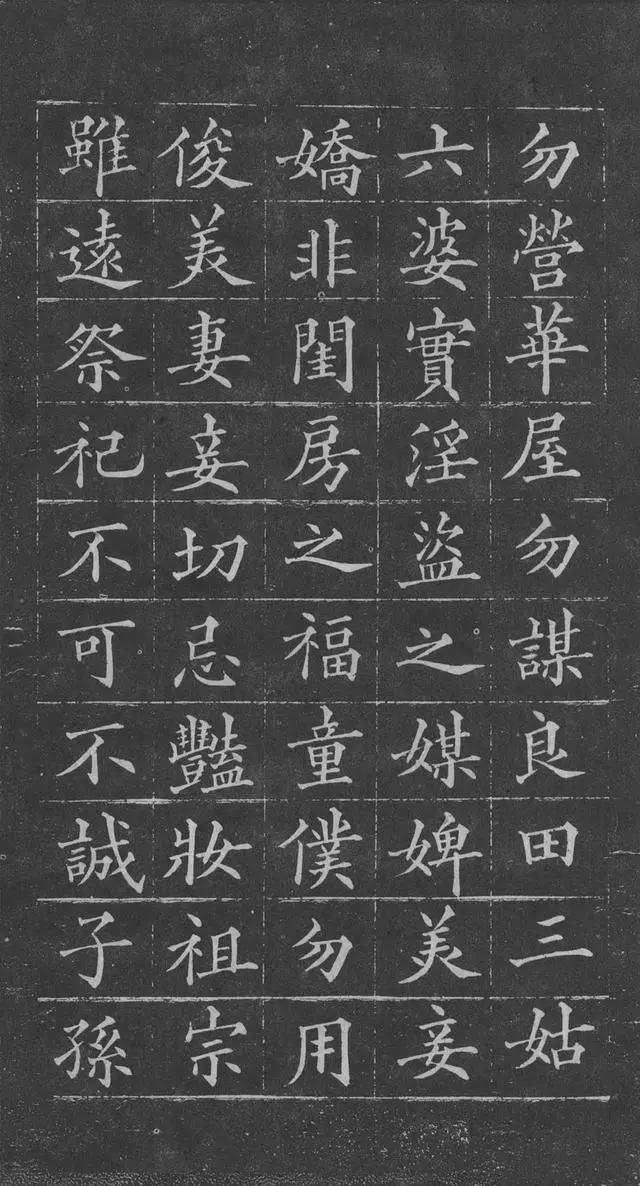 勿營華屋勿謀良田三姑
六婆實淫盜之媒婢美妾
嬌非閨房之福童僕勿用
俊美妻妾切忌豔妝祖宗
雖遠祭祀不可不誠子孫